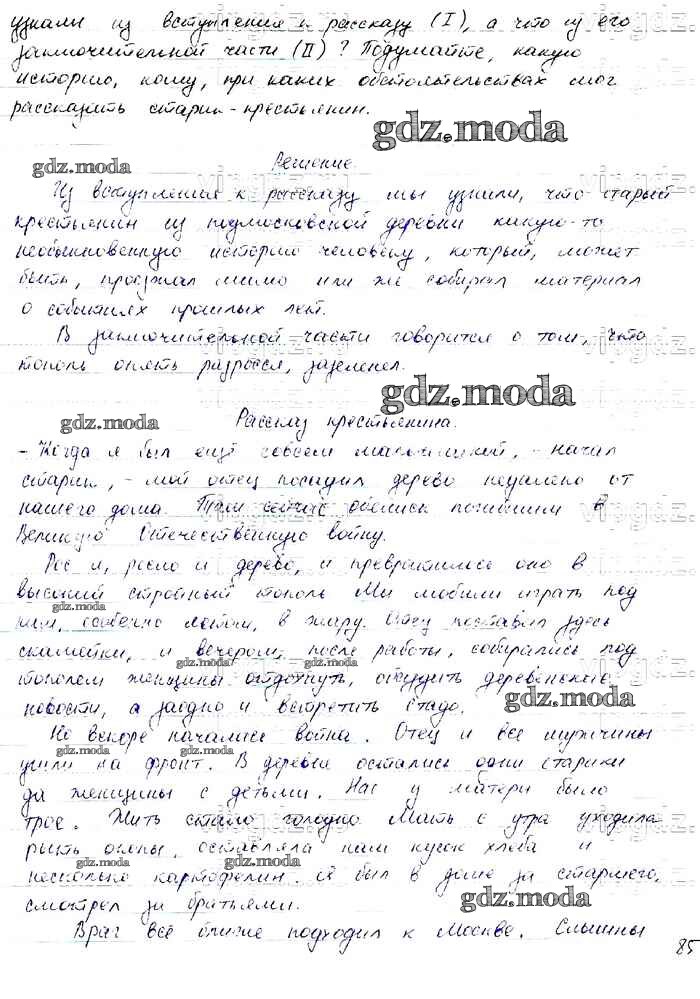 узнали из вступления к рассказу (I), а что из его
заключительной части (II)? Подумайте, какую
историю, кому, при каких обстоятельствах мог
рассказать старик-крестьянин.
gdz.moda
Решение
gdz.moda
Из вступления к рассказу мы узнали, что старый
крестьянин из подмосковной деревни какую-то
необыкновенную историю человеку, который, может
быть, проезжал мимо или же собирал материал
о событиях прошлых лет.
В заключительной части говорится о том, что
тополь опять разросся, зазеленел.
gdz.moda
gdz.moda
Рассказ крестьянина.
- Когда я был ещё совсем мальчишкой, - начал
старик, - мой отец посадил дерево недалеко от
нашего дома. Там сейчас обелиск погибшим в
Великую Отечественную войну.
Рос я, росло и дерево, и превратилось оно в
высокий стройный тополь. Мы любили играть под
gdz.moda
ним, особенно летом, в жару. Отец поставил здесь
скамейки, и вечером, после работы, собирались под
gdz.moda gdz.moda
тополем женщины отдохнуть, обсудить деревенские
новости, а заодно и встретить стадо.
gdz.moda
Но вскоре началась война. Отец и все мужчины
gdz.moda gdz.moda
ушли на фронт. В деревне остались одни старики
да женщины с детьми. Нас у матери было
трое. Жить стало голодно. Мать с утра уходила
рыть окопы, оставляла нам кусок хлеба и
gdz.moda gdz.moda
несколько картофелин. Я был в доме за старшего,
смотрел за братьями.
gdz.moda
Враг всё ближе подходил к Москве. Слышны
85